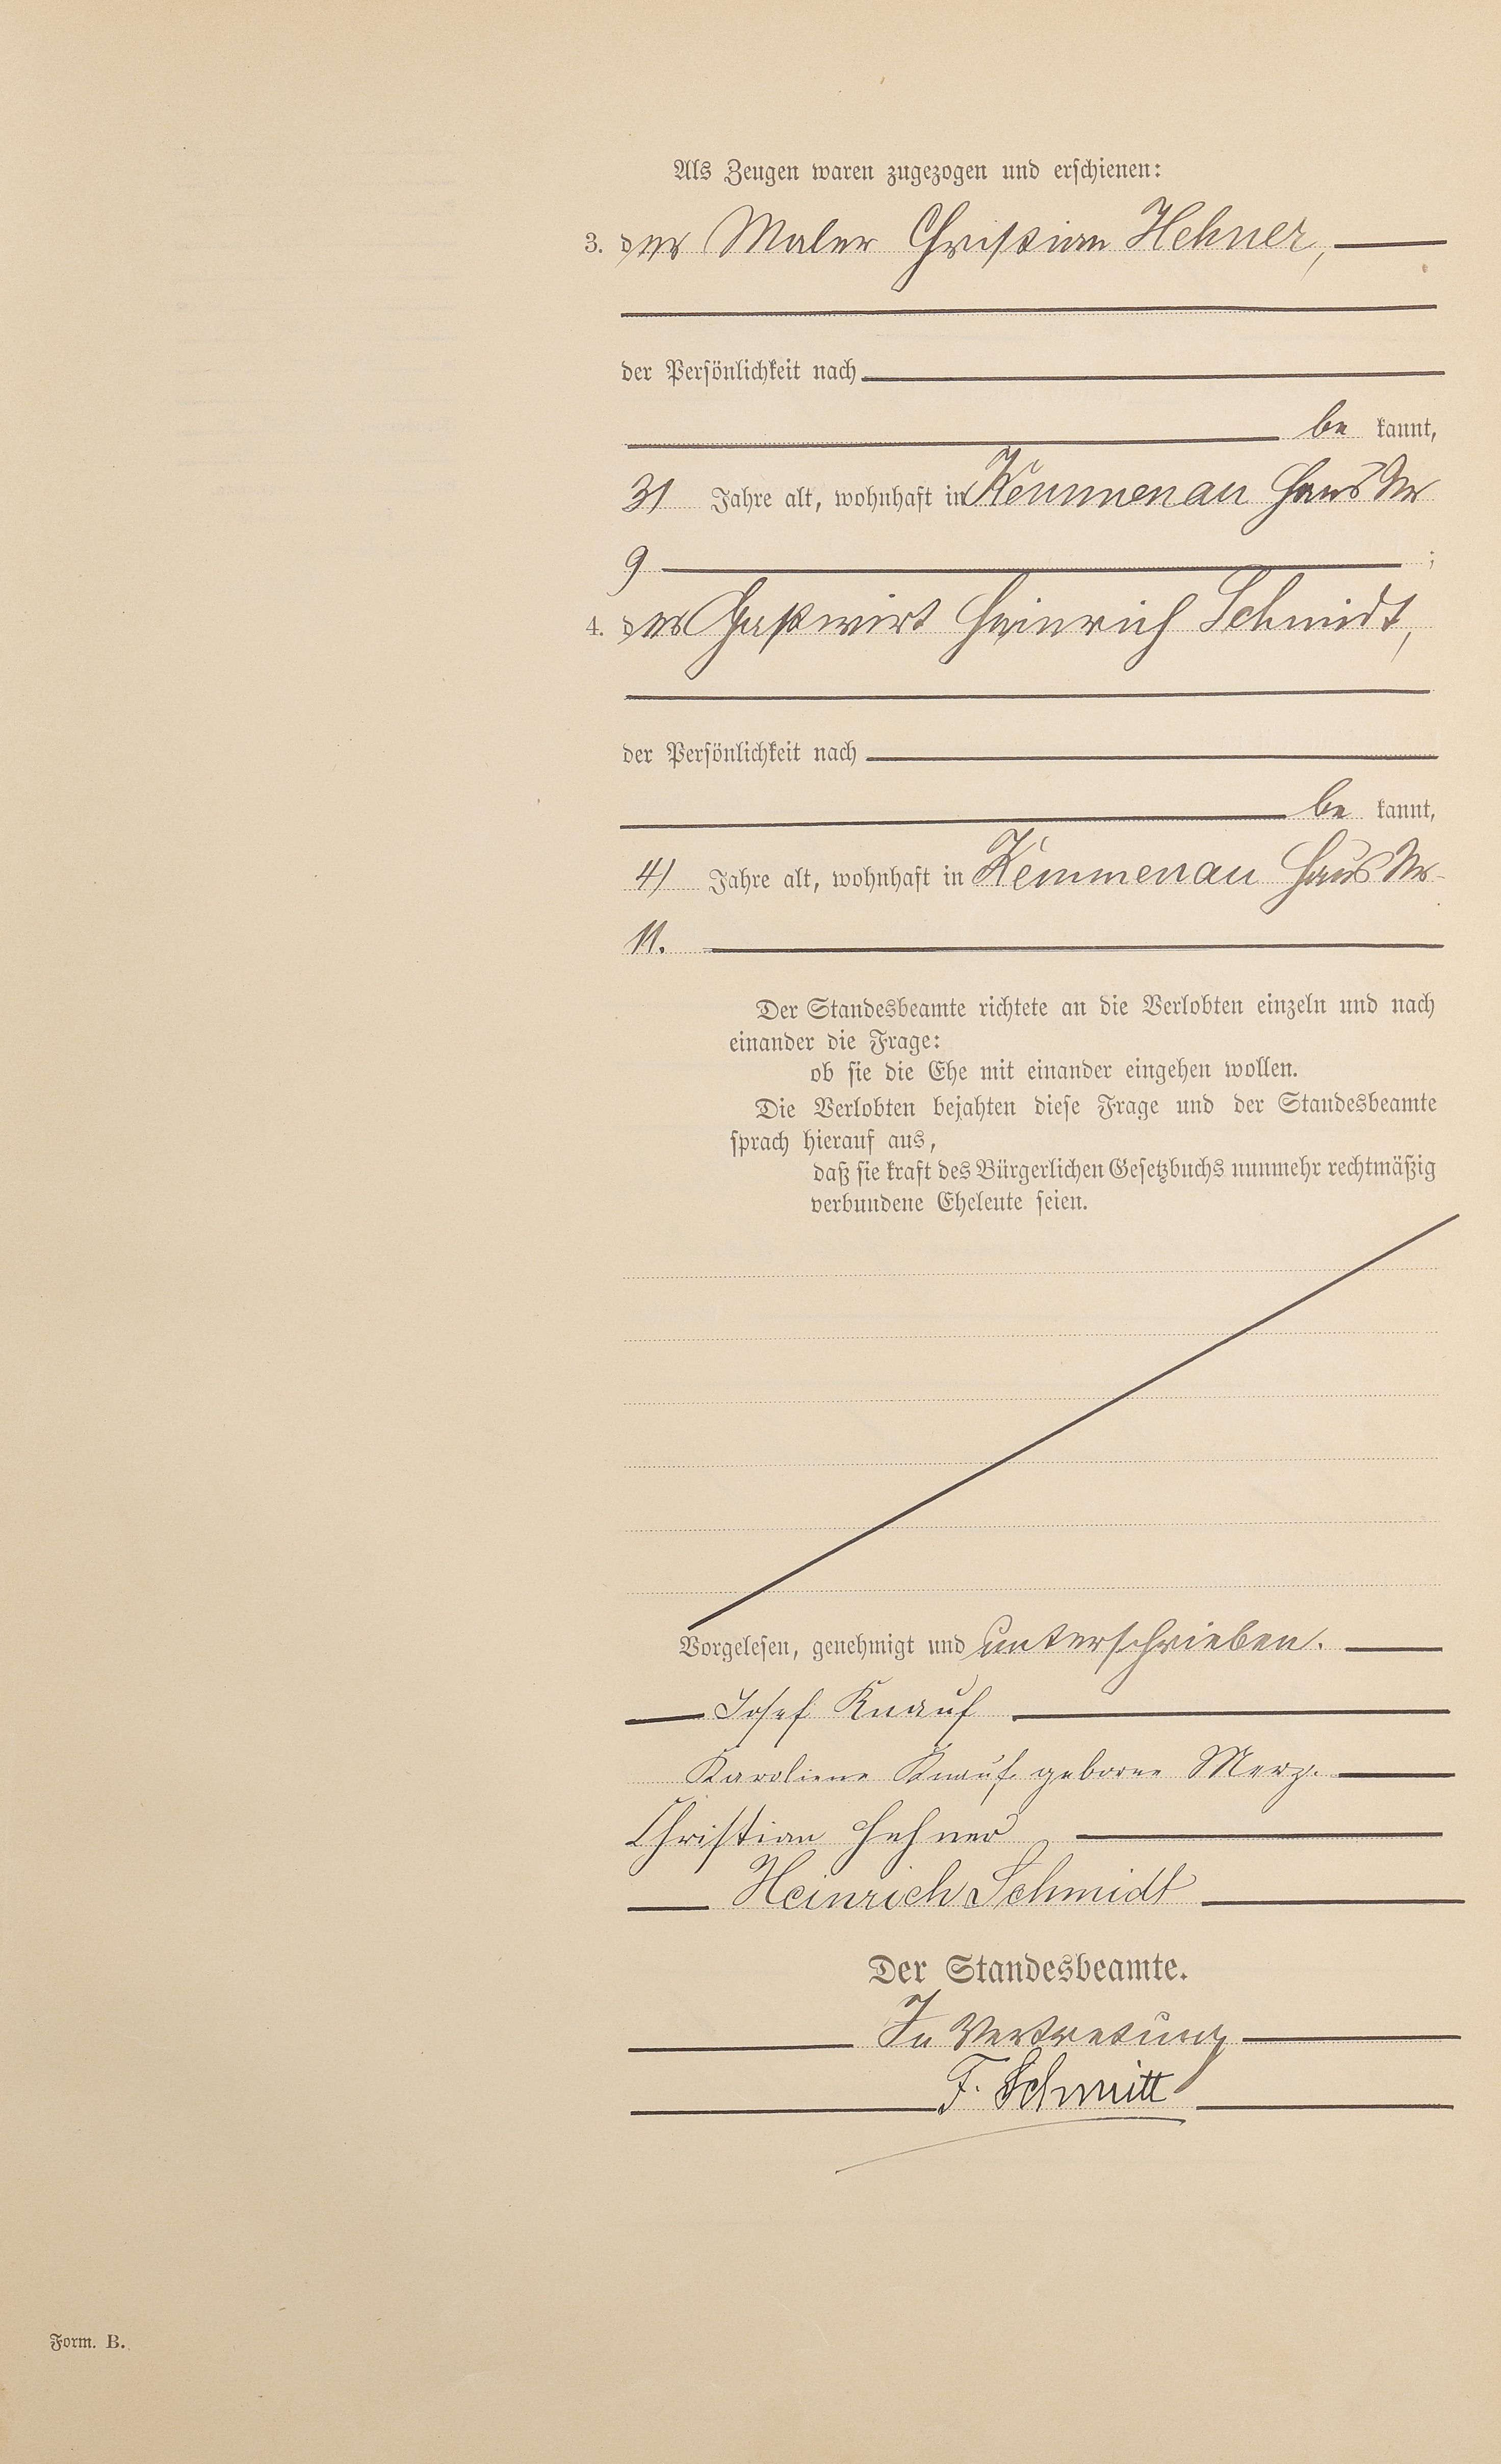 Als Zeugen waren zugezogen und erschienen:
3. der Maler Christian Hehner,
der Persönlichkeit nach
be kannt,
31 Jahre alt, wohnhaft in Kemmenau Haus Nr
9 ;
4. der Gastwirt Heinrich Schmidt,
der Persönlichkeit nach
be kannt,
41 Jahre alt, wohnhaft in Kemmenau Haus Nr.
11.
Der Standesbeamte richtete an die Verlobten einzeln und nach
einander die Frage:
ob sie die Ehe mit einander eingehen wollen.
Die Verlobten bejahten diese Frage und der Standesbeamte
sprach hierauf aus,
daß sie kraft des Bürgerlichen Gesetzbuchs nunmehr rechtmäßig
verbundene Eheleute seien.
Vorgelesen, genehmigt und unterschrieben.
Josef Knauf
Karoliene Knauf geborne Merz.
Christian Hehner
Heinrich Schmidt
Der Standesbeamte.
In Vertretung
F. Schmitt
Form. B.